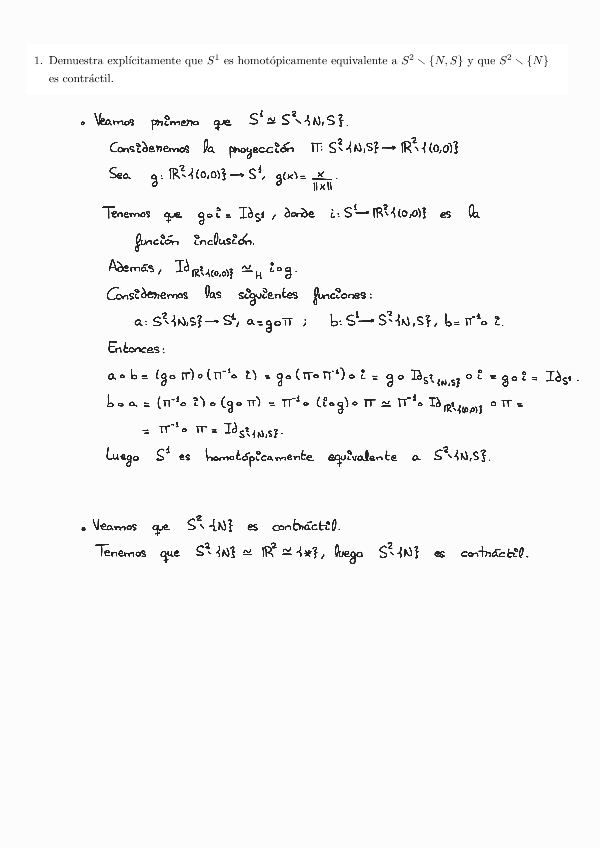 1. Demuestra explícitamente que S¹ es homotópicamente equivalente a S² ∖ {N, S} y que S² ∖ {N}
es contráctil.
• Veamos primero que S¹ ≃ S²∖{N,S}.
Consideremos la proyección π: S²∖{N,S} → ℝ²∖{(0,0)}
Sea g: ℝ²∖{(0,0)} → S¹, g(x) = x/||x||.
Tenemos que g∘i = Id_{S¹}, donde i: S¹ → ℝ²∖{(0,0)} es la
función inclusión.
Además, Id_{ℝ²∖{(0,0)}} ≃_H i∘g.
Consideremos las siguientes funciones:
a: S²∖{N,S} → S¹, a = g∘π ; b: S¹ → S²∖{N,S}, b = π⁻¹∘i.
Entonces:
a∘b = (g∘π)∘(π⁻¹∘i) = g∘(π∘π⁻¹)∘i = g∘Id_{S²∖{N,S}}∘i = g∘i = Id_{S¹}.
b∘a = (π⁻¹∘i)∘(g∘π) = π⁻¹∘(i∘g)∘π ≃ π⁻¹∘Id_{ℝ²∖{(0,0)}}∘π =
= π⁻¹∘π = Id_{S²∖{N,S}}.
Luego S¹ es homotópicamente equivalente a S²∖{N,S}.
• Veamos que S²∖{N} es contráctil.
Tenemos que S²∖{N} ≃ ℝ² ≃ {*}, luego S²∖{N} es contráctil.